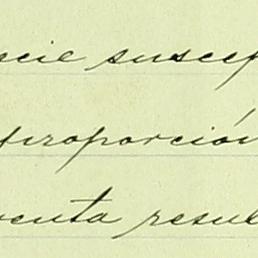 scie suscep
proporción
venta resul